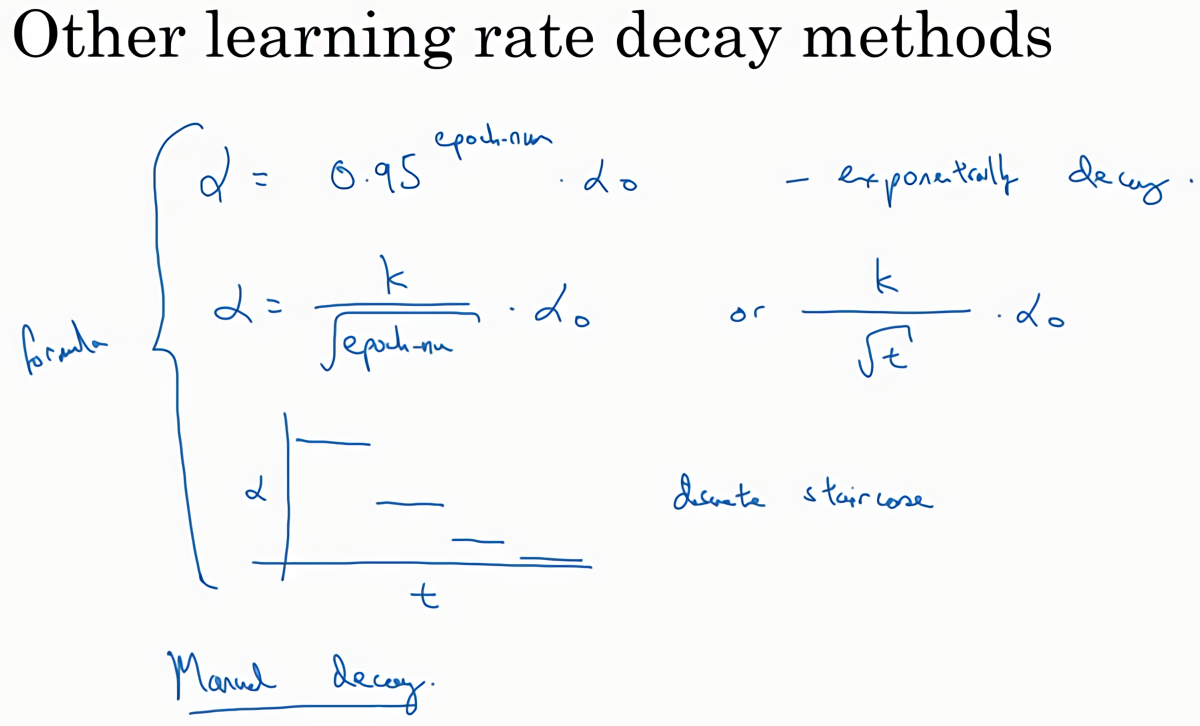 Other learning rate decay methods
α = 0.95^epoch-num · α₀ - exponentially decay.
formula
α = k / √epoch-num · α₀ or k / √t · α₀
α
discrete staircase
t
Manual decay.